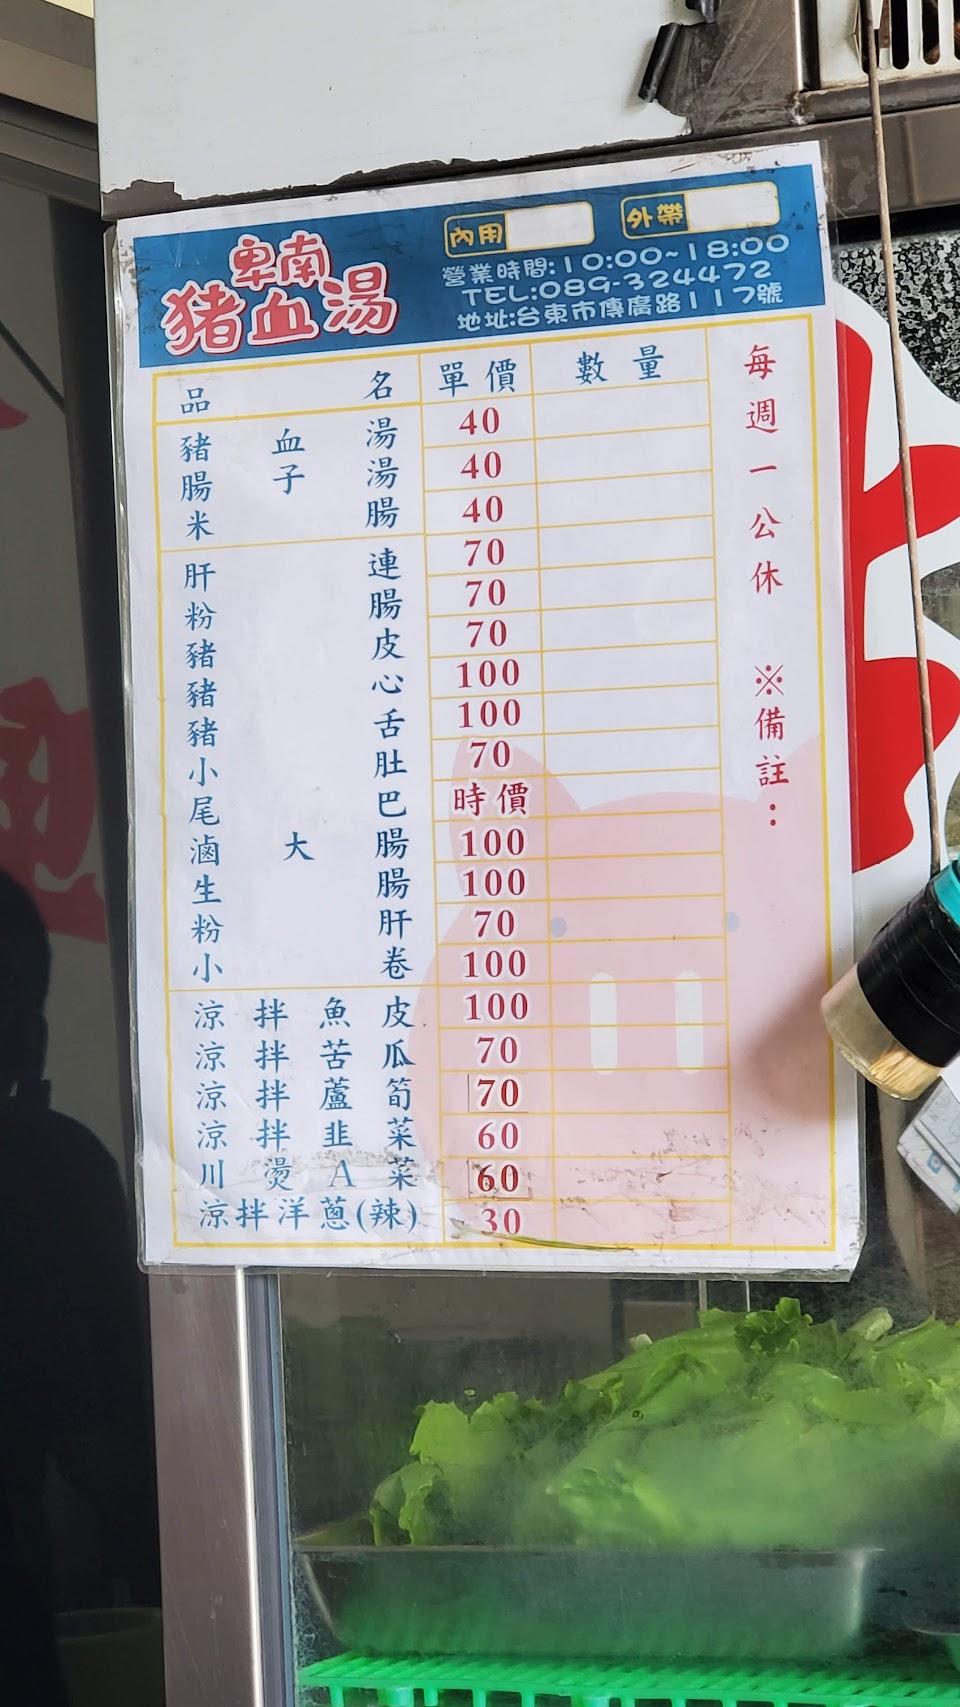 卑南
豬血湯
內用
外帶
營業時間:10:00~18:00
TEL:089-324472
地址:台東市傳廣路117號
品名 單價 數量
豬血湯 40
腸子湯 40
米腸 40
肝連 70
粉腸 70
豬皮 70
豬心 100
豬舌 100
小肚 70
尾巴 時價
滷大腸 100
生腸 100
粉肝 70
小卷 100
涼拌魚皮 100
涼拌苦瓜 70
涼拌蘆筍 70
涼拌韭菜 60
川燙A菜 60
涼拌洋蔥(辣) 30
每週一公休
※備註: